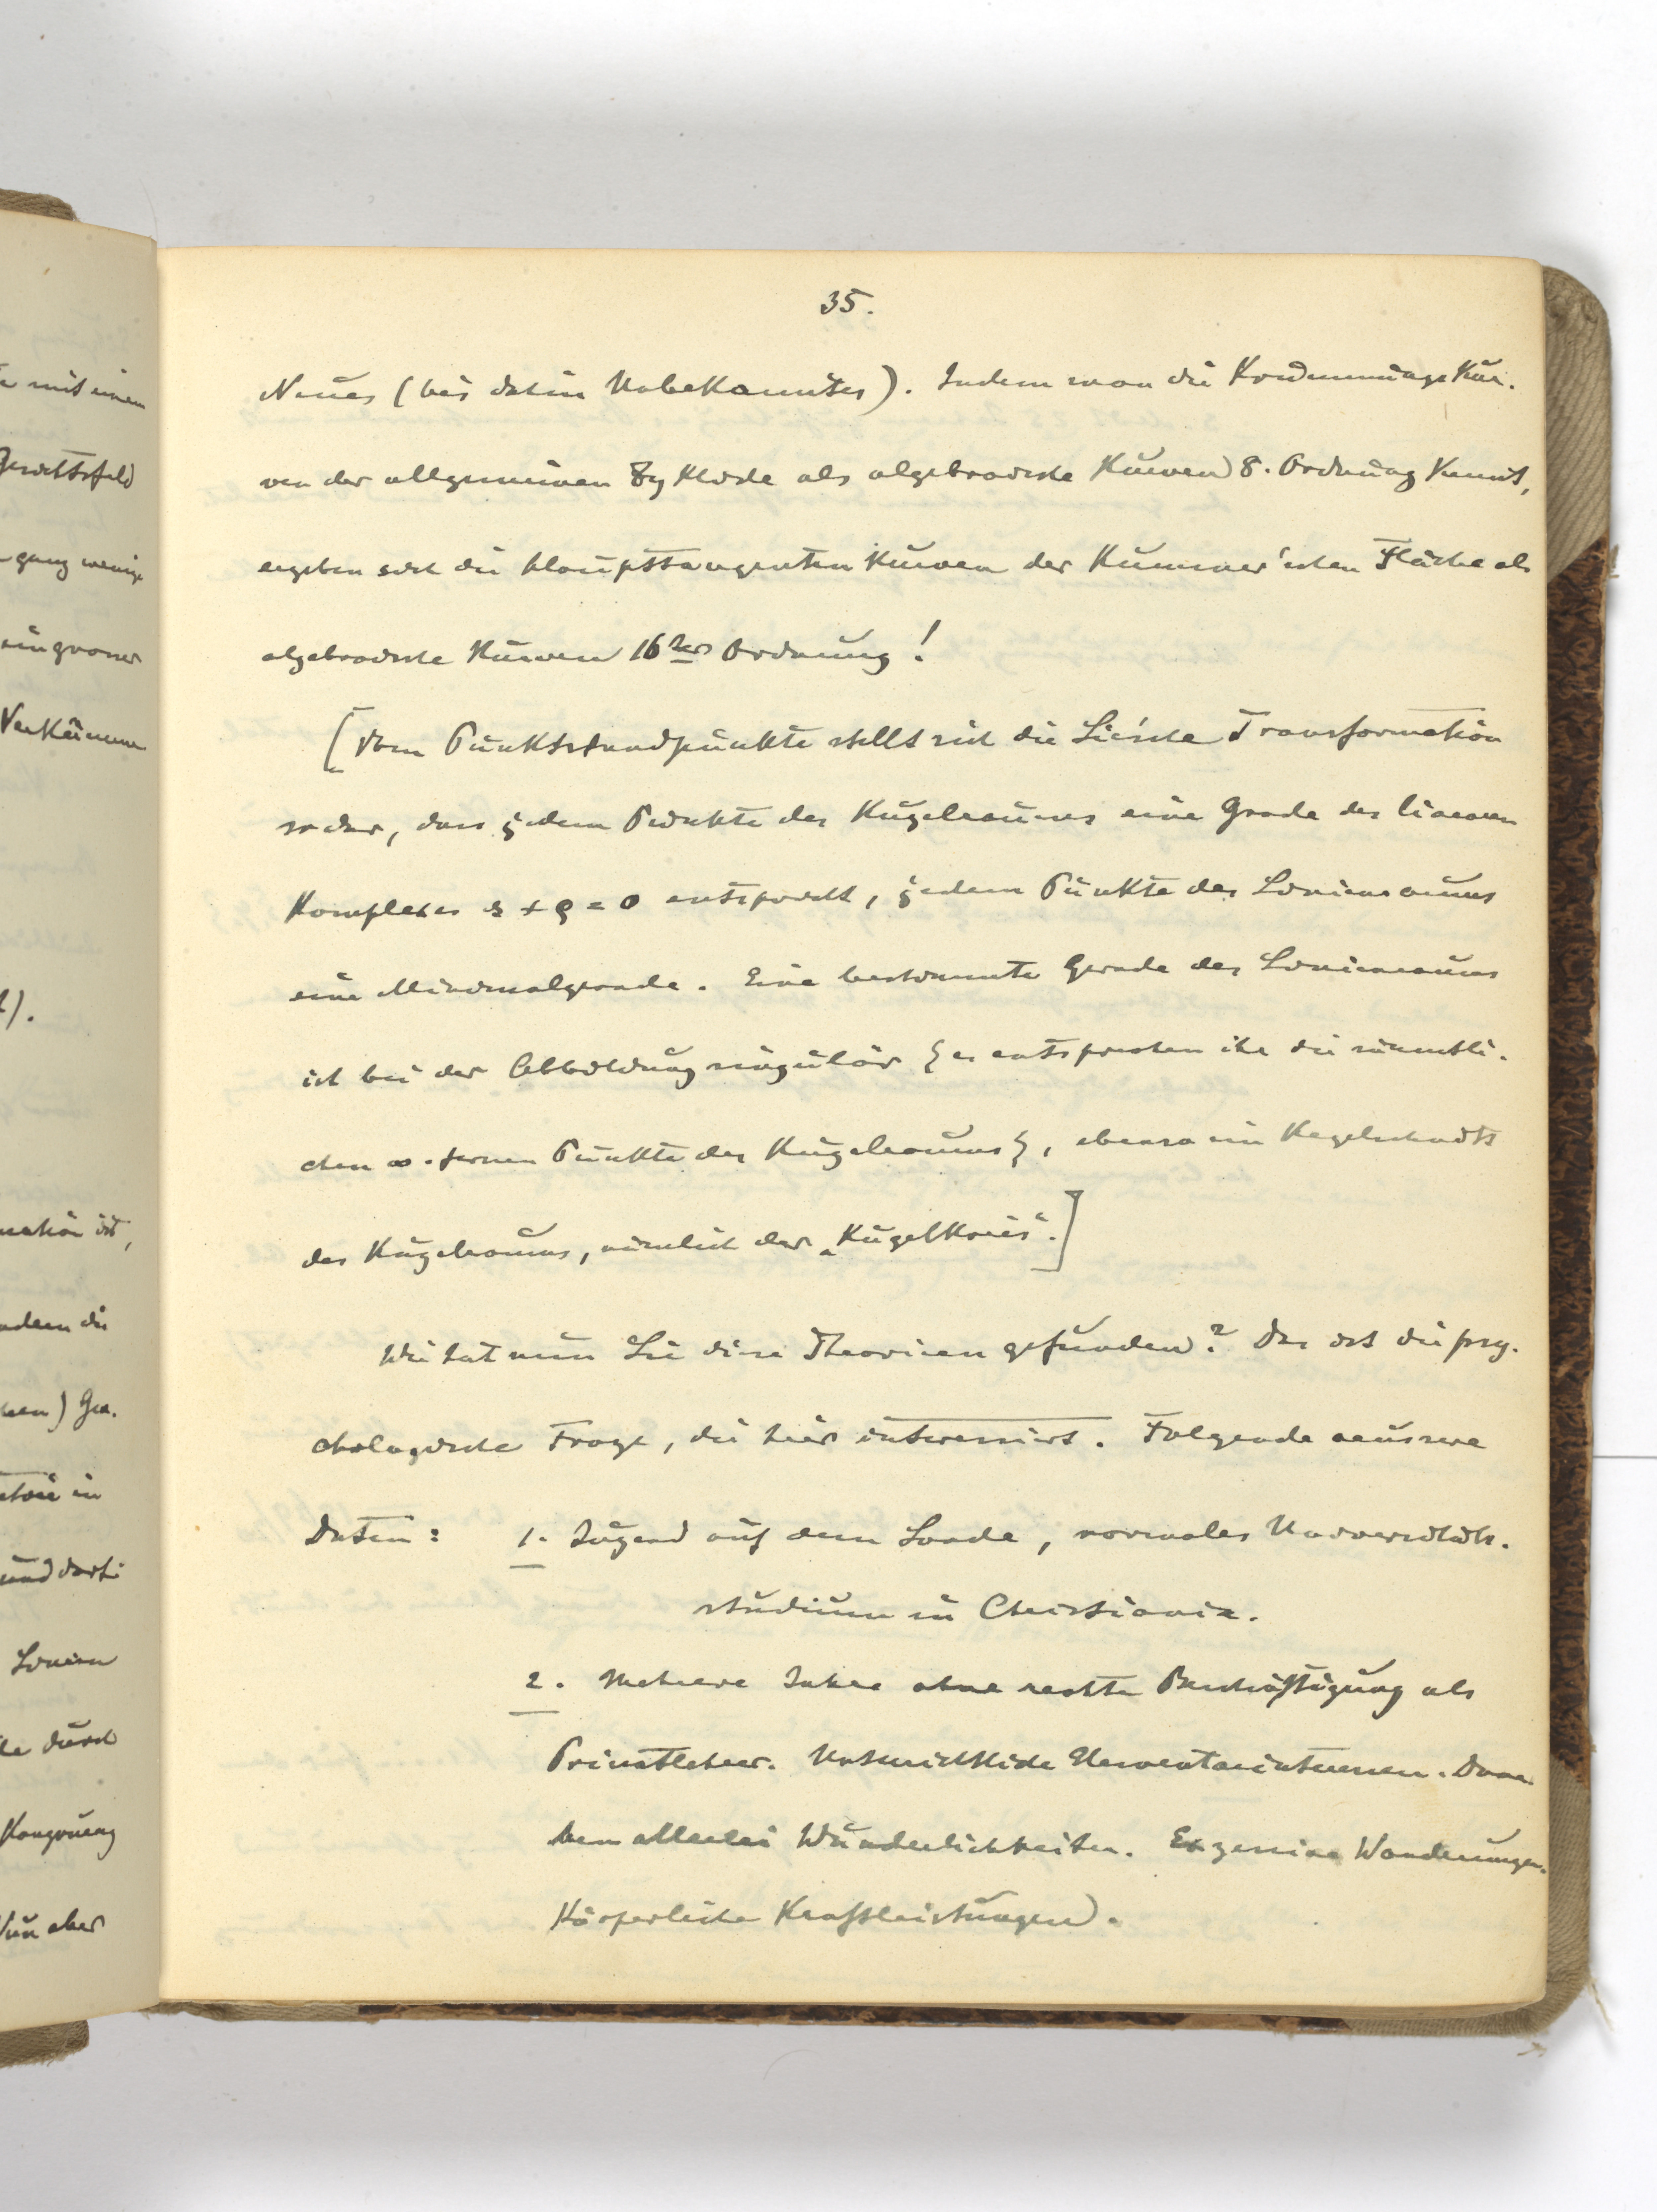 35.
Neues (bis dahin Unbekanntes). Indem man die Krümmungskur-
ven der allgemeinen Zyklide als algebraische Kurven 8. Ordnung kennt,
ergeben sich die Haupttangentenkurven der Kummer'schen Fläche als
algebraische Kurven 16ter Ordnung!
[Vom Punktstandpunkte stellt sich die Lie'sche Transformation
so dar, dass jedem Punkte des Kugelraumes eine Grade des linearen
Komplexes + ρ = 0 entspricht, jedem Punkte des Linienraums
eine Minimalgerade. Eine bestimmte Gerade des Linienraums
ist bei der Abbildung singulär { es entsprechen ihr die sämmtli-
chen ∞-fernen Punkte des Kugelraums }, ebenso ein Kegelschnitt
des Kugelraums, nämlich der „Kugelkreis“.]
Wie hat nun Lie diese Theorieen gefunden? Das ist die psy-
chologische Frage, die hier interessirt. Folgende aeussere
Daten: 1. Jugend auf dem Lande, normales Universitäts-
studium in Christiania.
2. Mehrere Jahre ohne rechte Beschäftigung als
Privatlehrer. Unterrichtliche Elementarinteressen. Dane-
ben allerlei Wunderlichkeiten. Exzessive Wanderungen.
Körperliche Kraftleistungen.
mit einem
ganz wenige
in grosser
2).
ist,
die
hen) Geo-
in
und darti
Linien
durch
Kongruenz
Nun aber